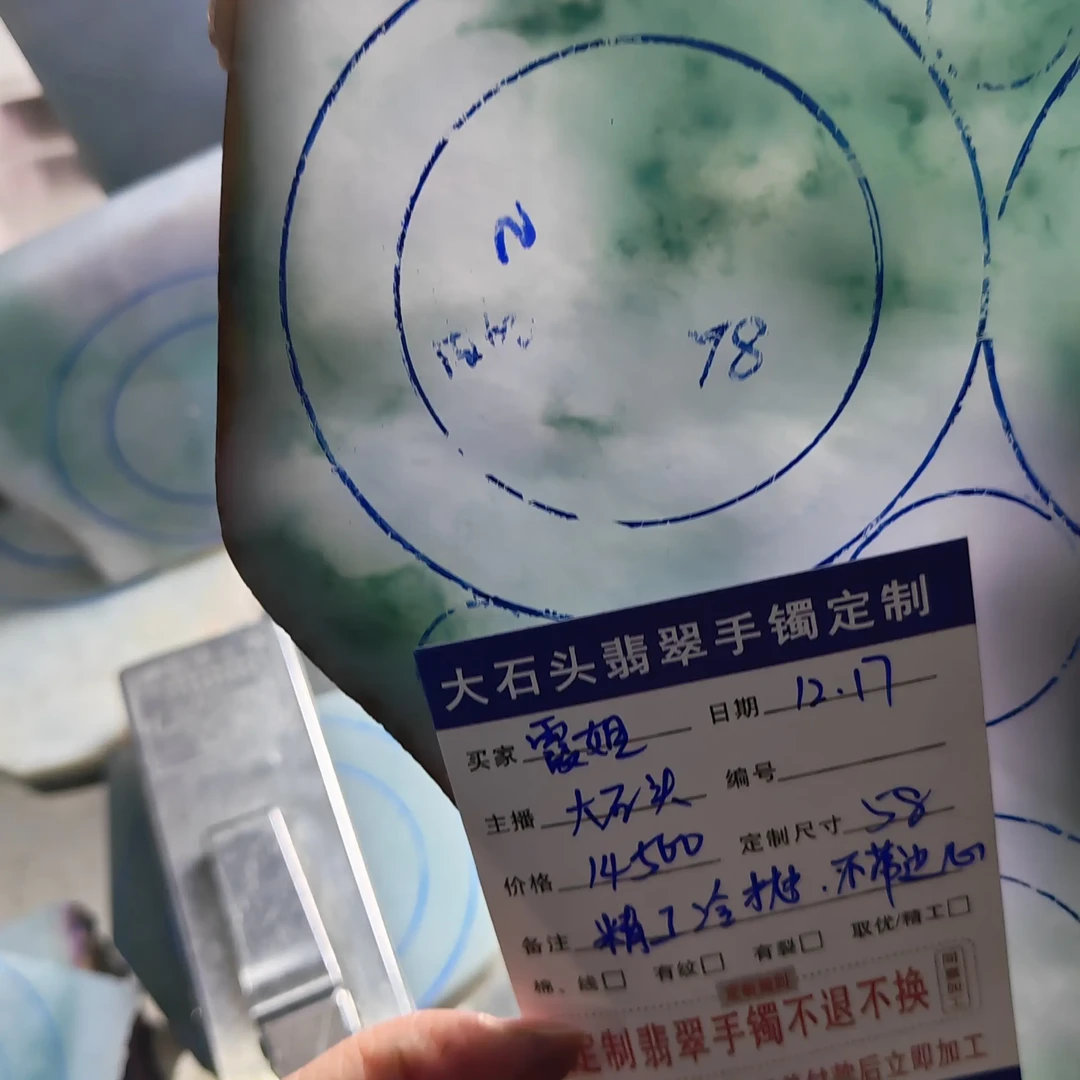 N
78
大石头翡翠手镯定制
买家 霞姐 日期 12.17
主播 大石头 编号
价格 14500 定制尺寸 58
备注 精工冷抛.不带边心
棉、线□ 有纹□ 有裂□ 取优/精工□
定制翡翠手镯不退不换
后立即加工